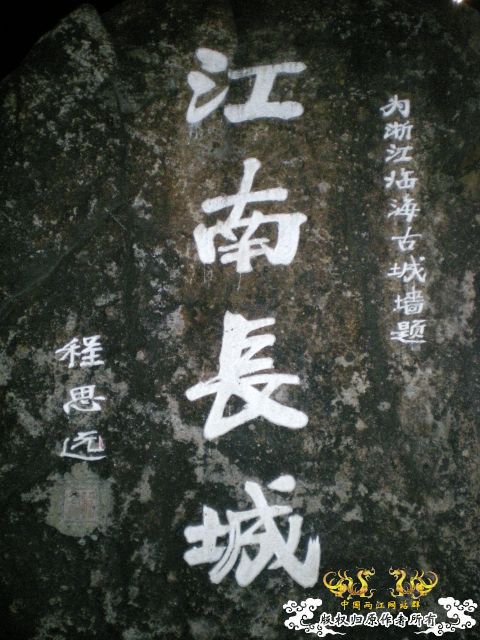 为浙江临海古城墙题
江南長城
程思远
中国两江网站群
版权归原作者所有